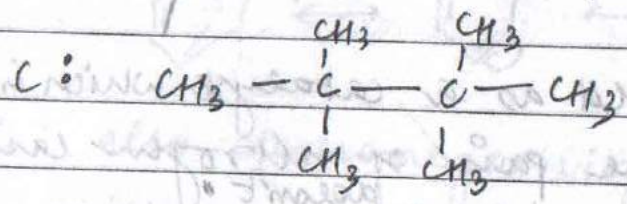 CH3 CH3
C: CH3 — C — C — CH3
CH3 CH3